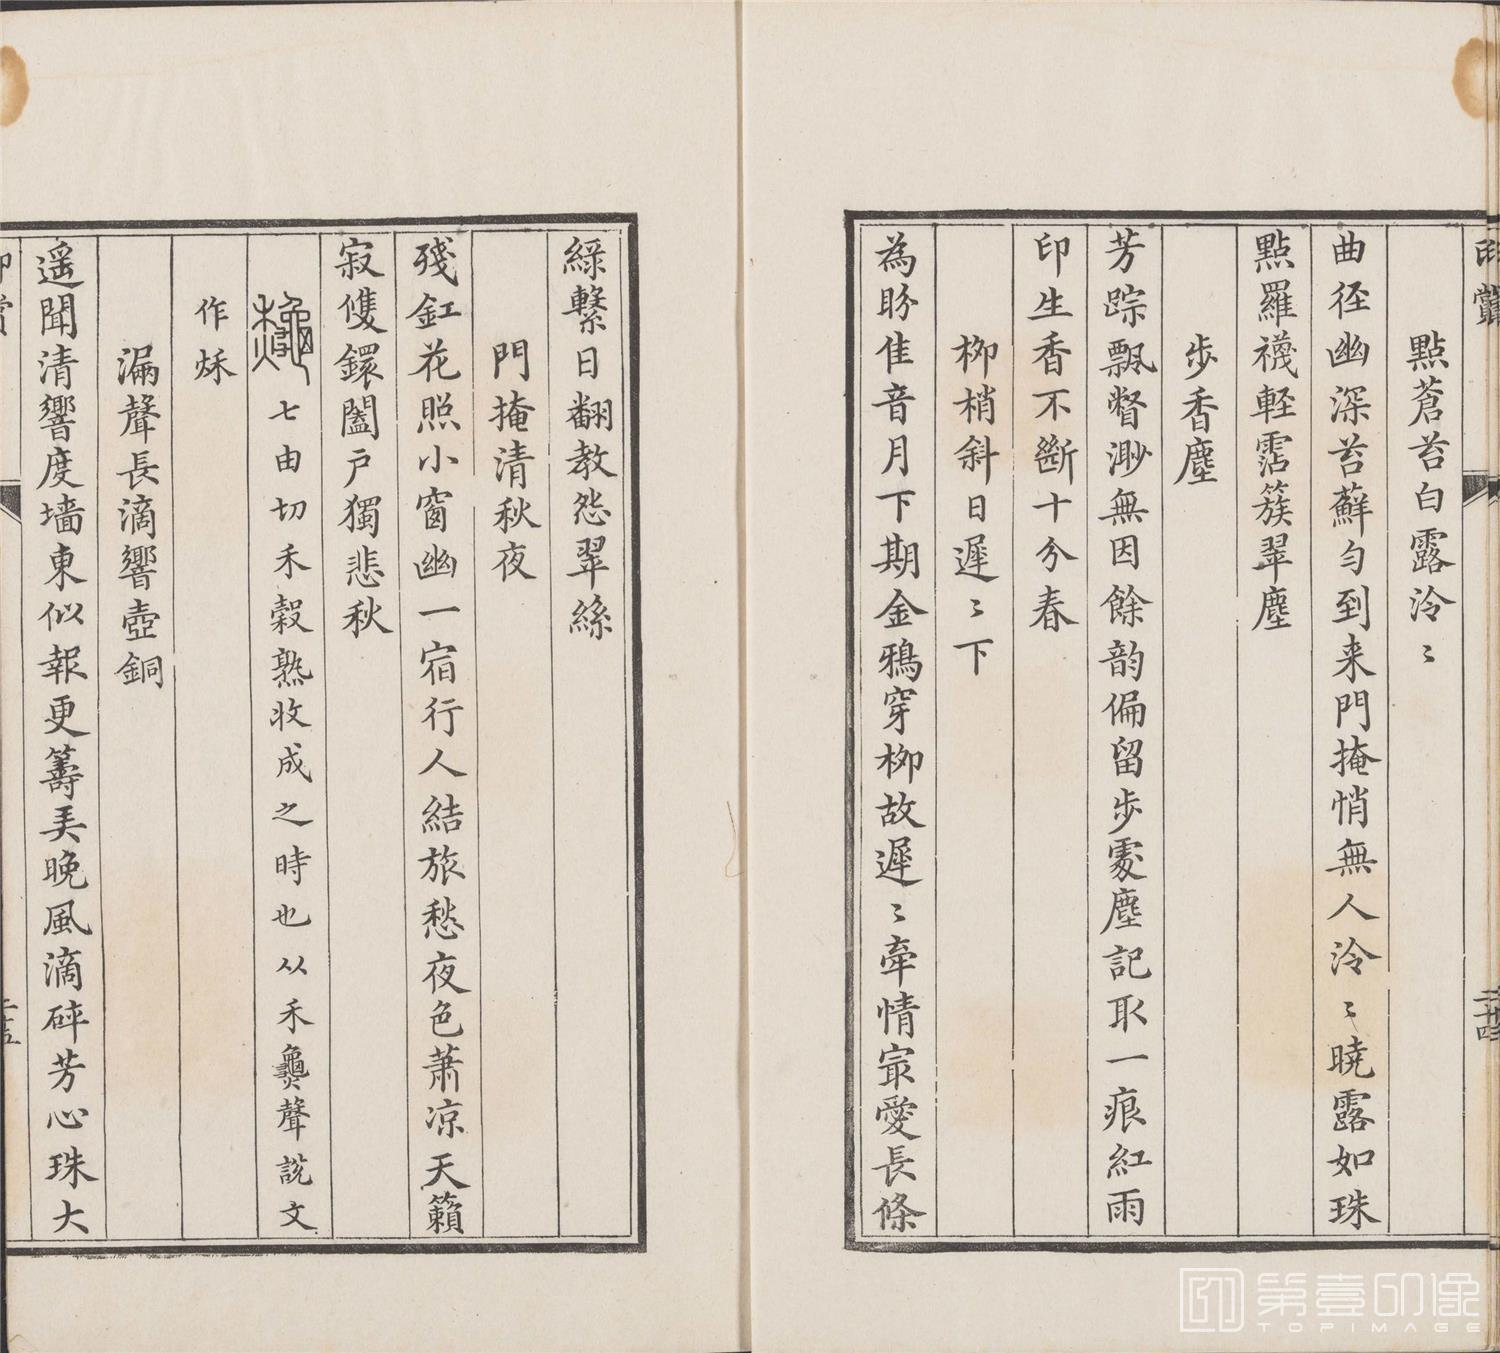 點蒼苔白露泠〻
曲徑幽深苔蘚勻到来門掩悄無人泠〻曉露如珠
點羅襪輕霑簇翠塵
步香塵
芳踪飄瞥渺無因餘韵偏留步處塵記取一痕紅雨
印生香不斷十分春
柳梢斜日遲〻下
為盼佳音月下期金鴉穿柳故遲〻牽情㝡愛長條
綵繫日翻教怨翠絲
門掩清秋夜
殘釭花照小窗幽一宿行人結旅愁夜色蕭凉天籟
寂雙鐶闔户獨悲秋
七由切禾穀熟收成之時也从禾𪚰聲説文
作烁
漏聲長滴響壺銅
遥聞清響度墙東似報更籌美晚風滴碎芳心珠大
二十五
TOPIMAGE